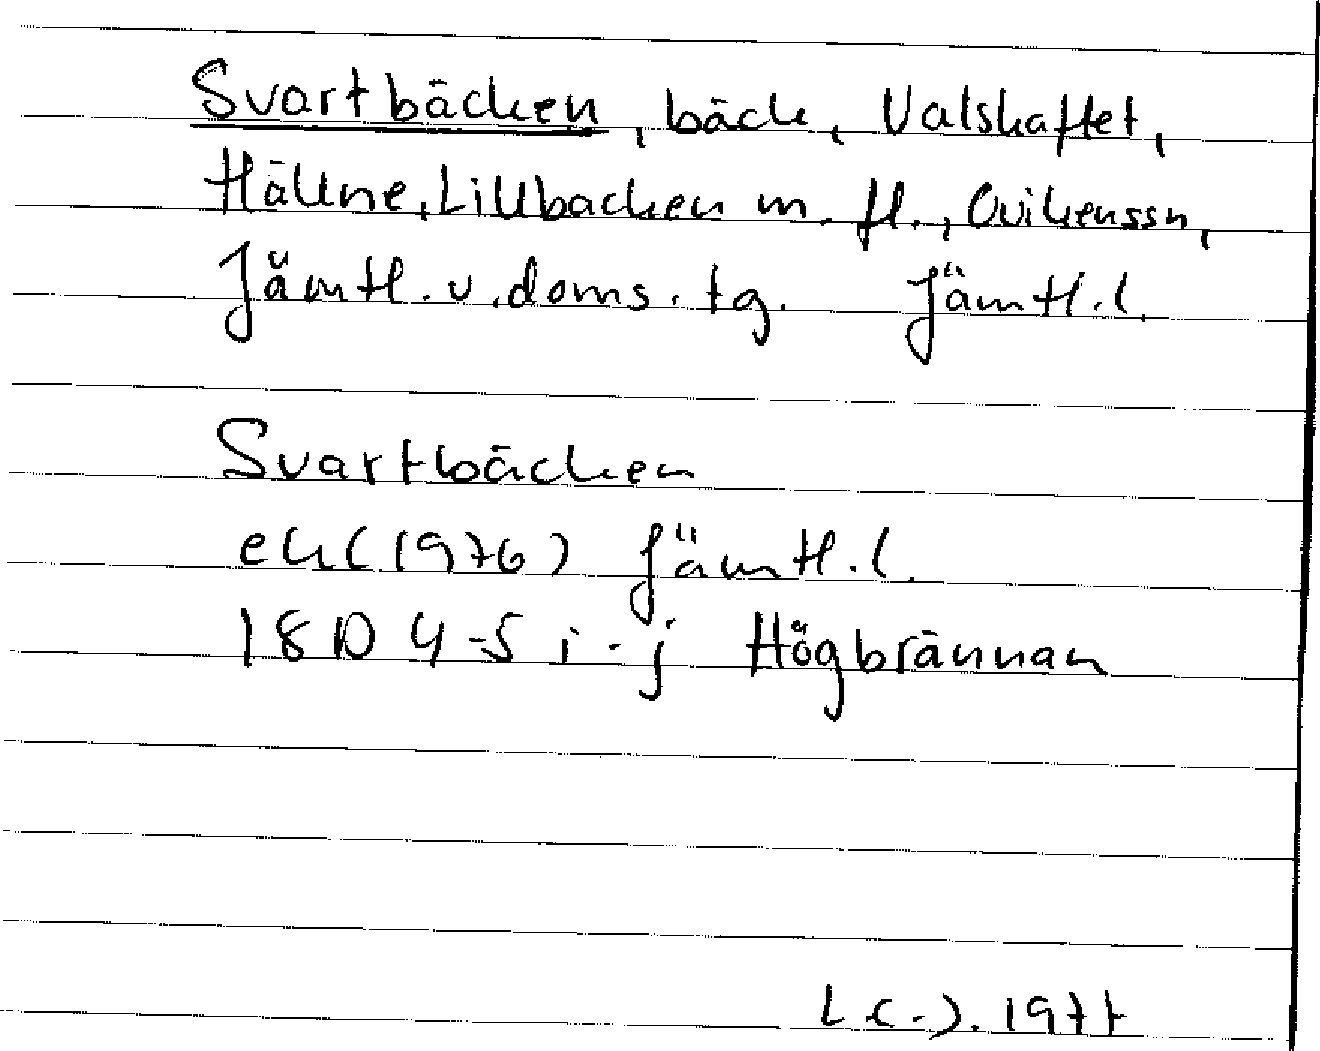 Svartbäcken, bäck, Valskaftet,
Hällne, Lillbacken m. fl., Ovikenssn,
Jämtl. v. doms. tg. Jämtl. l.
Svartbäcken
ek (1976) Jämtl. l.
18D 4-5 i-j Högbrännan
1977